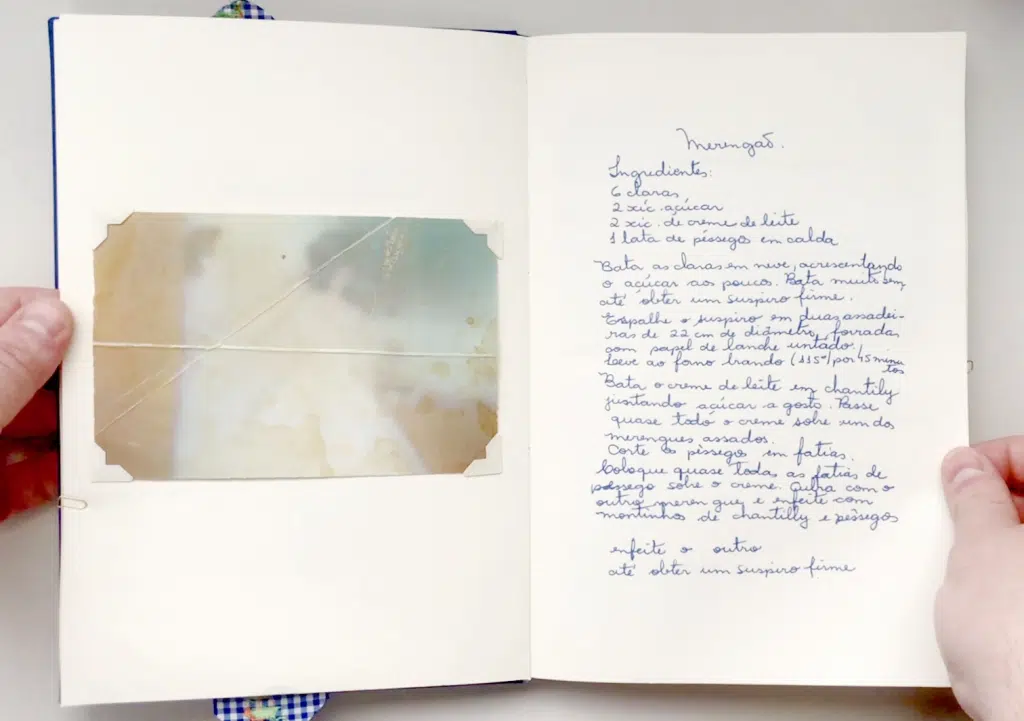 Merengão.
Ingredientes:
6 claras
2 xíc. açúcar
2 xíc. de creme de leite
1 lata de pêssegos em calda
Bata as claras em neve, acrescentando
o açúcar aos poucos. Bata muito bem
até obter um suspiro firme.
Espalhe o suspiro em duas assadei-
ras de 22 cm de diâmetro, forradas
com papel de lanche untado.
Leve ao forno brando (115°) por 45 minu
tos
Bata o creme de leite em chantily
juntando açúcar a gosto. Passe
quase todo o creme sobre um dos
merengues assados.
Corte os pêssegos em fatias.
Coloque quase todas as fatias de
pêssego sobre o creme. Cubra com o
outro merengue e enfeite com
montinhos de chantilly e pêssegos
enfeite o outro
até obter um suspiro firme